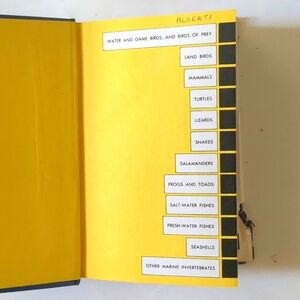 ALBERTI
WATER AND GAME BIRDS, AND BIRDS OF PREY
LAND BIRDS
MAMMALS
TURTLES
LIZARDS
SNAKES
SALAMANDERS
FROGS AND TOADS
SALT-WATER FISHES
FRESH-WATER FISHES
SEASHELLS
OTHER MARINE INVERTEBRATES